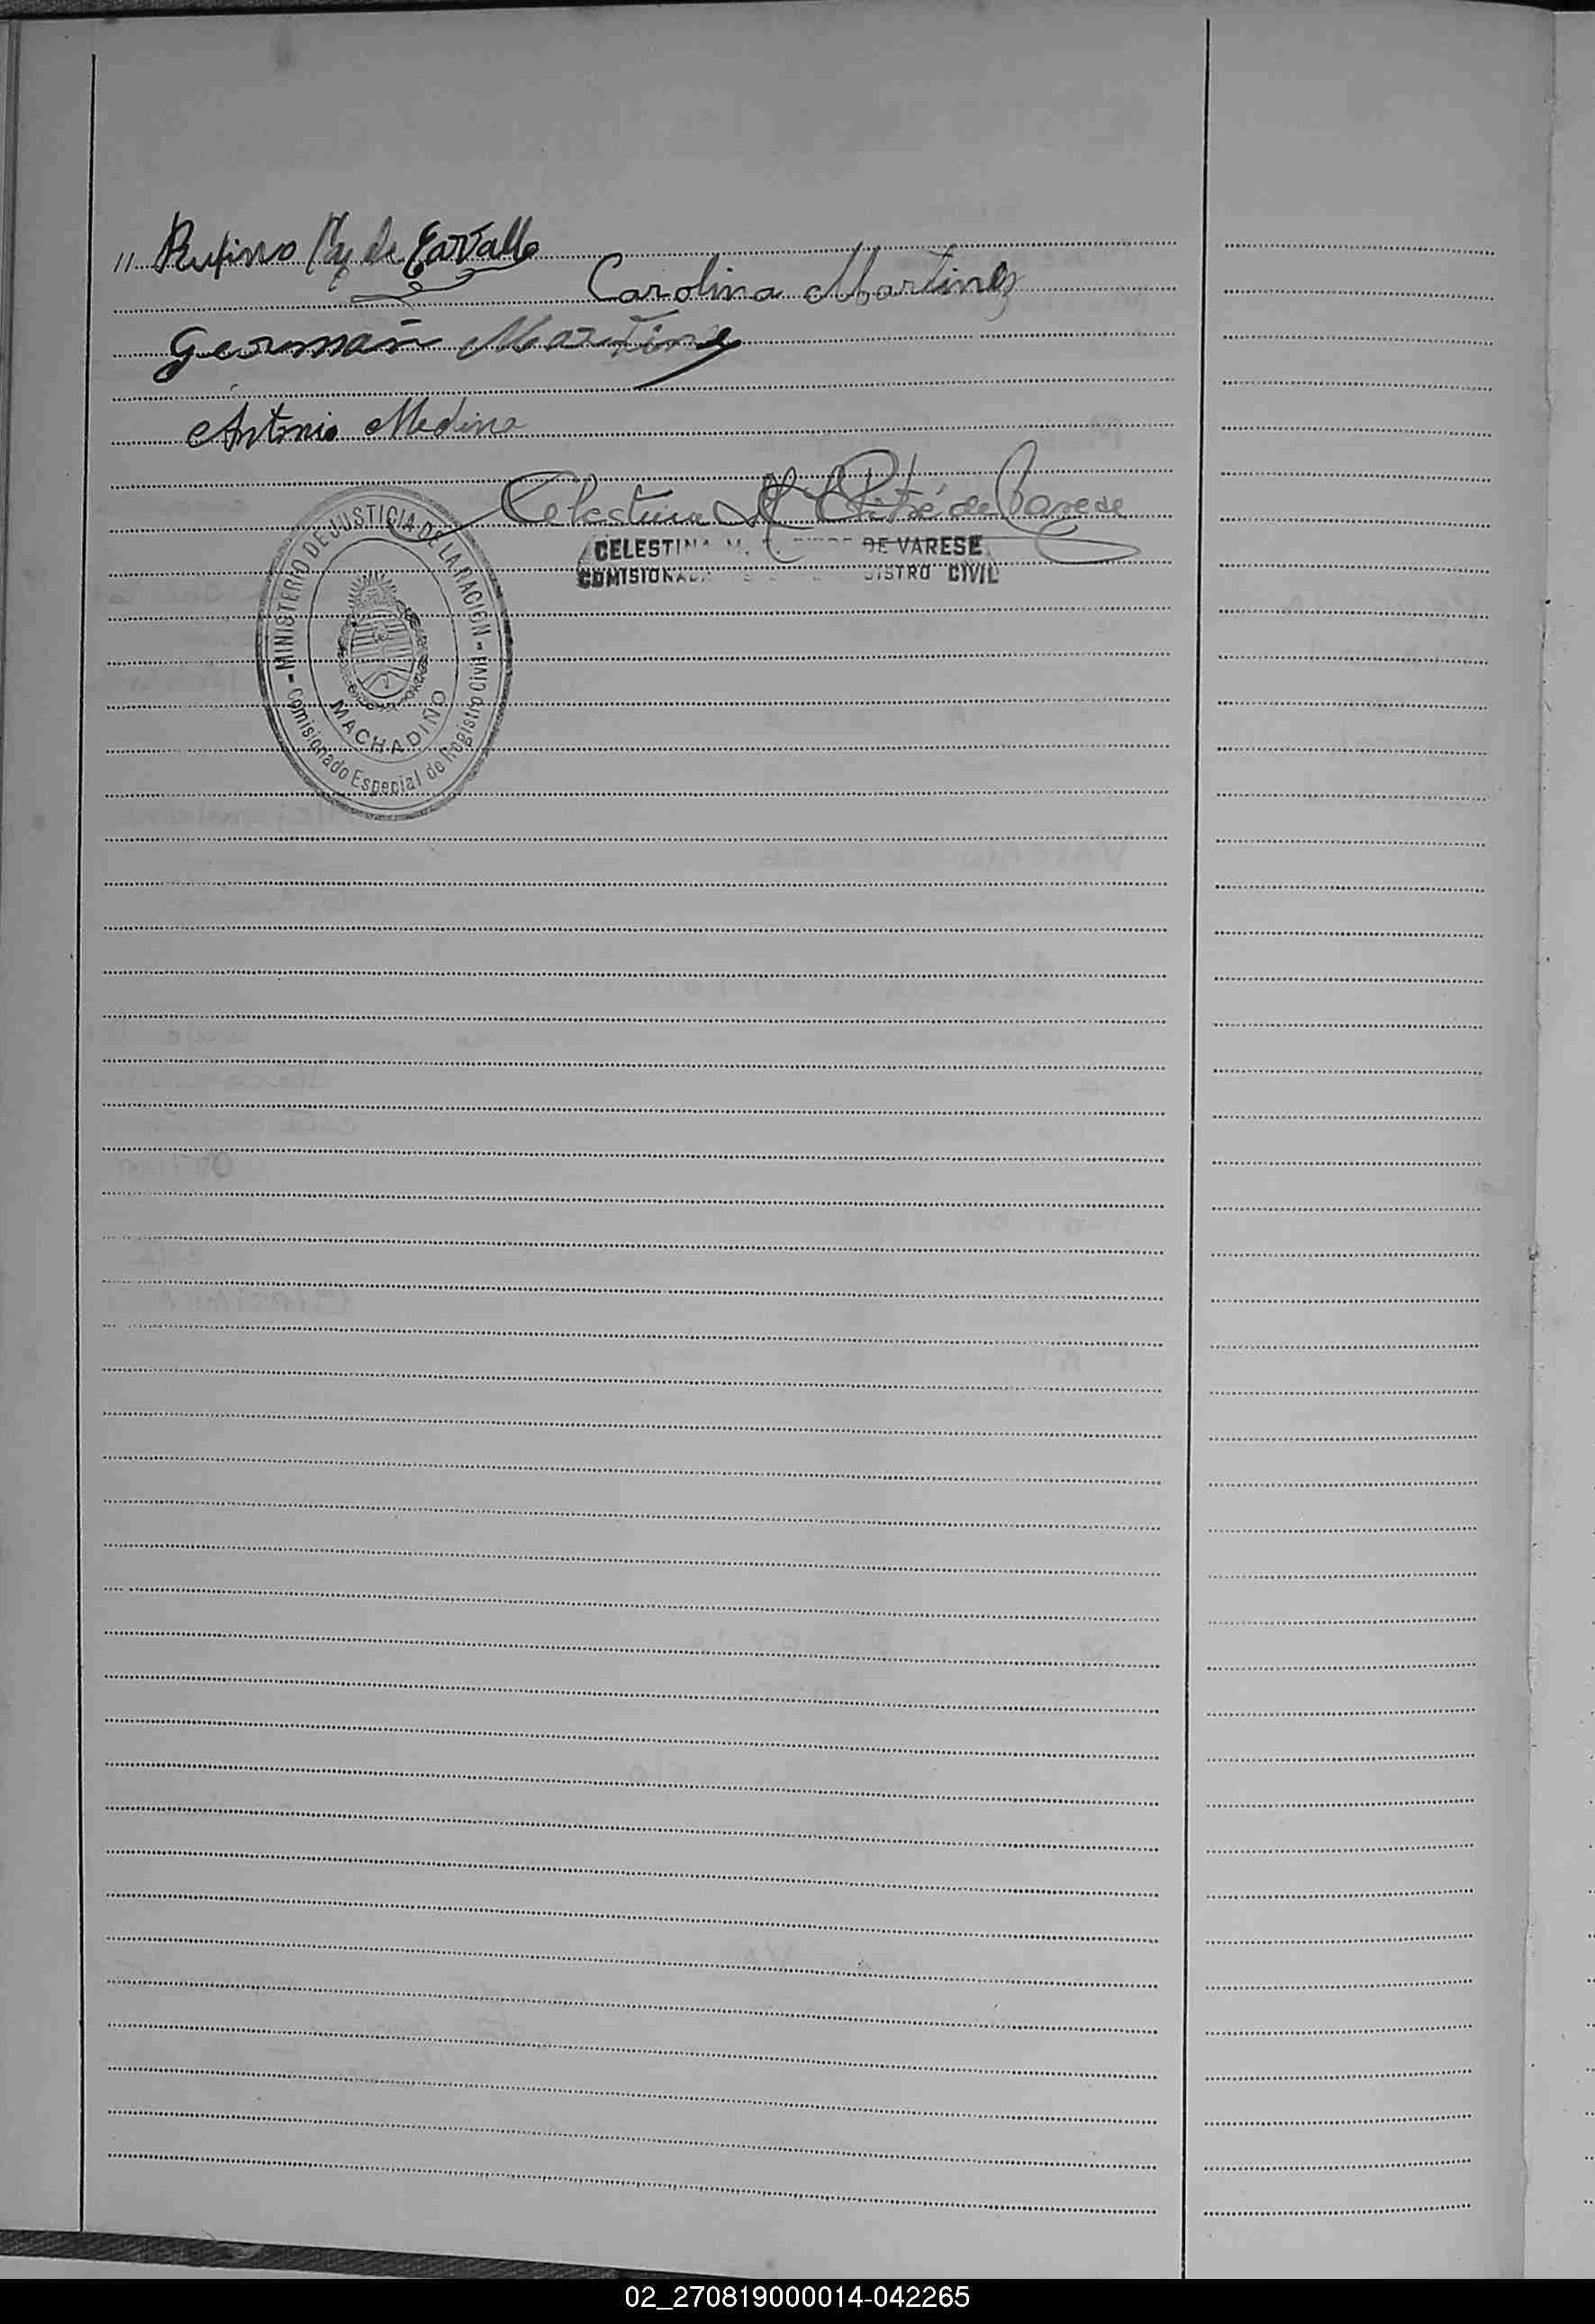 " Rufino de Carvallo
Carolina Martinez
Germán Martinez
Antonio Medina
Celestina M. de Varese
CELESTINA M. DE VARESE
COMISIONADA REGISTRO CIVIL
- MINISTERIO DE JUSTICIA DE LA NACIÓN -
Comisionado Especial de Registro Civil
MACHADIÑO
02_270819000014-042265